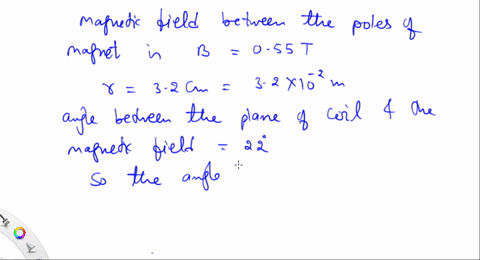 magnetic field between the poles of
magnet is B = 0.55 T
r = 3.2 cm = 3.2 × 10⁻² m
angle between the plane of coil & the
magnetic field = 22°
So the angle